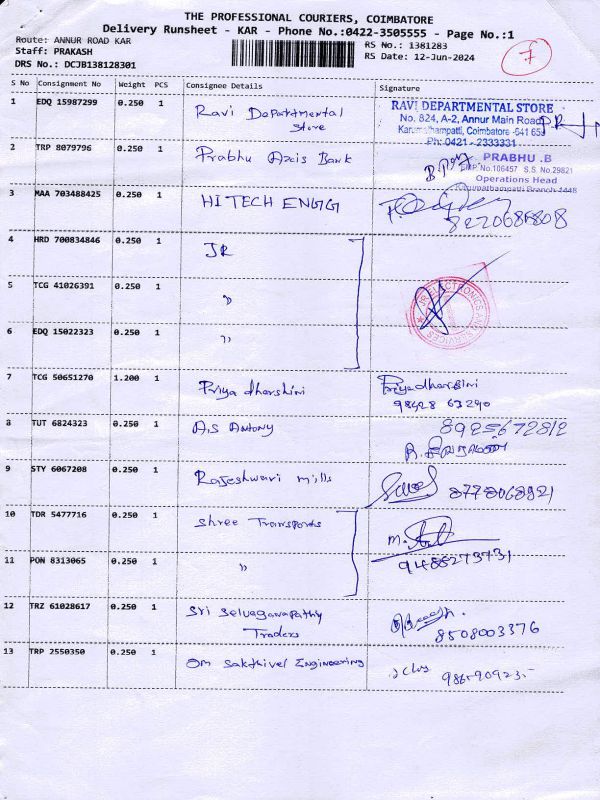 THE PROFESSIONAL COURIERS, COIMBATORE
Delivery Runsheet - KAR - Phone No.:0422-3505555 - Page No.:1
Route: ANNUR ROAD KAR
Staff: PRAKASH
DRS No.: DCJB138128301
RS No.: 1381283
RS Date: 12-Jun-2024
7
S No Consignment No Weight PCS Consignee Details Signature
1 EDQ 15987299 0.250 1 Ravi Departmental Store
RAVI DEPARTMENTAL STORE
No. 824, A-2, Annur Main Road
Coimbatore -641 65
Ph: 0421 - 2333331
2 TRP 8079796 0.250 1 Prabhu Axis Bank
PRABHU .B
EMP No.106457 S.S. No.29821
Operations Head
3 MAA 703488425 0.250 1 HITECH ENGG
4 HRD 700834846 0.250 1 JR
5 TCG 41026391 0.250 1 "
ELECTRONICS AND SERVICES
6 EDQ 15022323 0.250 1 "
7 TCG 50651270 1.200 1 Priya dharshini Priyadharshini
98428 63290
8 TUT 6824323 0.250 1 A.S Antony 8925672812
9 STY 6067208 0.250 1 Rajeshwari mills 8778068921
10 TDR 5477716 0.250 1 Shree Transports
11 PON 8313065 0.250 1 " 9488273731
12 TRZ 61028617 0.250 1 Sri Selvaganapathy Traders
8508003376
13 TRP 2550350 0.250 1 Om Sakthivel Engineering